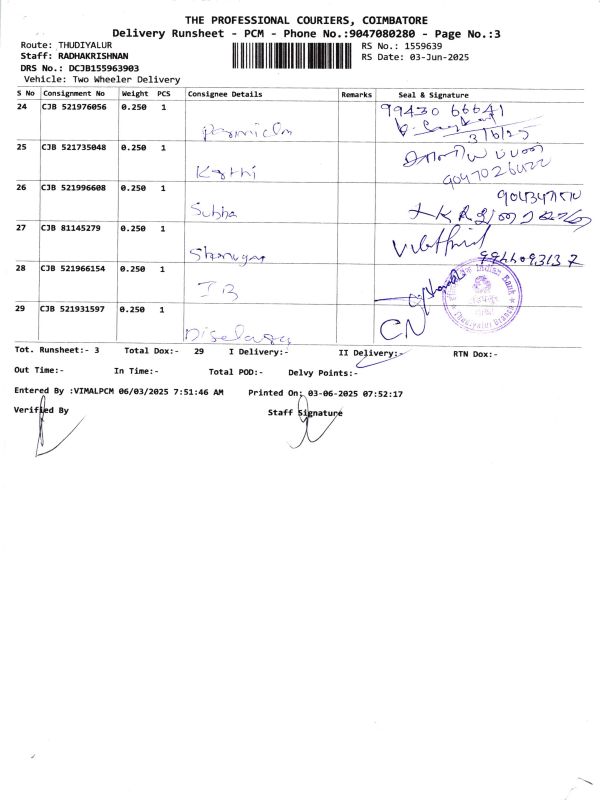 THE PROFESSIONAL COURIERS, COIMBATORE
Delivery Runsheet - PCM - Phone No.:9047080280 - Page No.:3
Route: THUDIYALUR RS No.: 1559639
Staff: RADHAKRISHNAN RS Date: 03-Jun-2025
DRS No.: DCJB155963903
Vehicle: Two Wheeler Delivery
S No Consignment No Weight PCS Consignee Details Remarks Seal & Signature
24 CJB 521976056 0.250 1 99430 66641
3/6/25
25 CJB 521735048 0.250 1
Karthi
26 CJB 521996608 0.250 1
Subha
27 CJB 81145279 0.250 1
Shanmugam
28 CJB 521966154 0.250 1
IB
Indian Bank
29 CJB 521931597 0.250 1
CN
Tot. Runsheet:- 3 Total Dox:- 29 I Delivery:- II Delivery:- RTN Dox:-
Out Time:- In Time:- Total POD:- Delvy Points:-
Entered By :VIMALPCM 06/03/2025 7:51:46 AM Printed On: 03-06-2025 07:52:17
Verified By Staff Signature